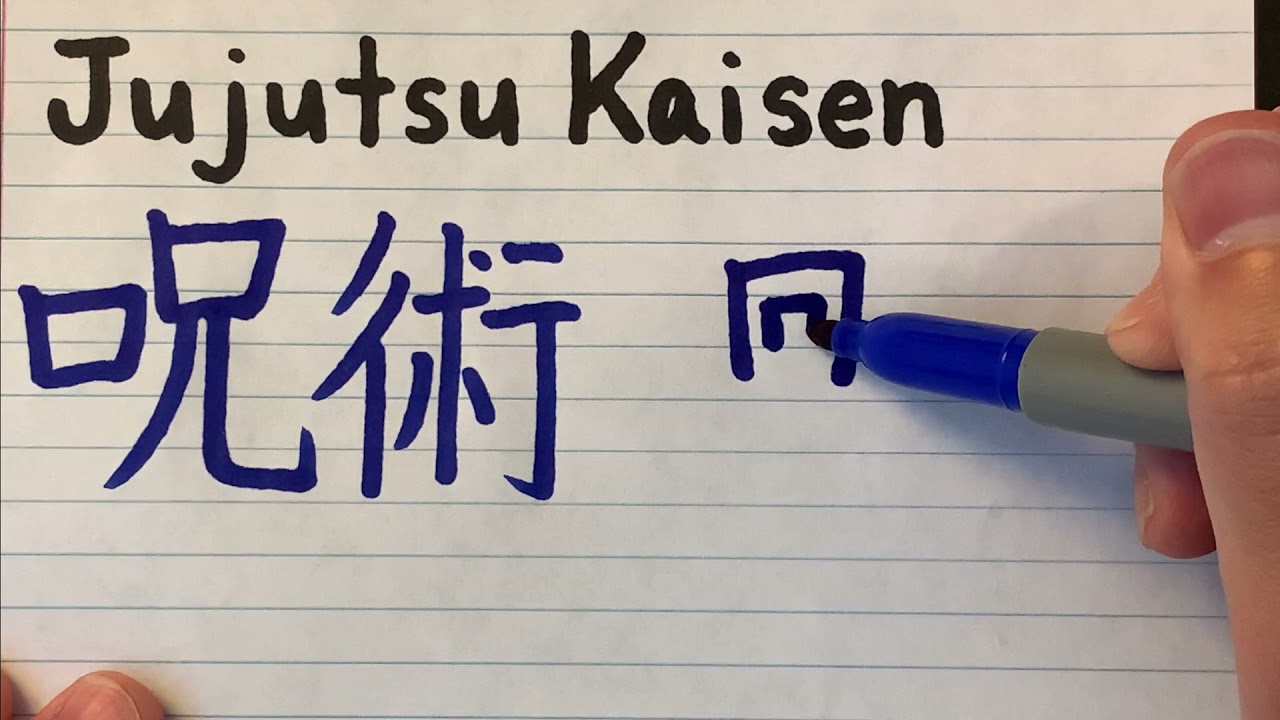 Jujutsu Kaisen
呪術